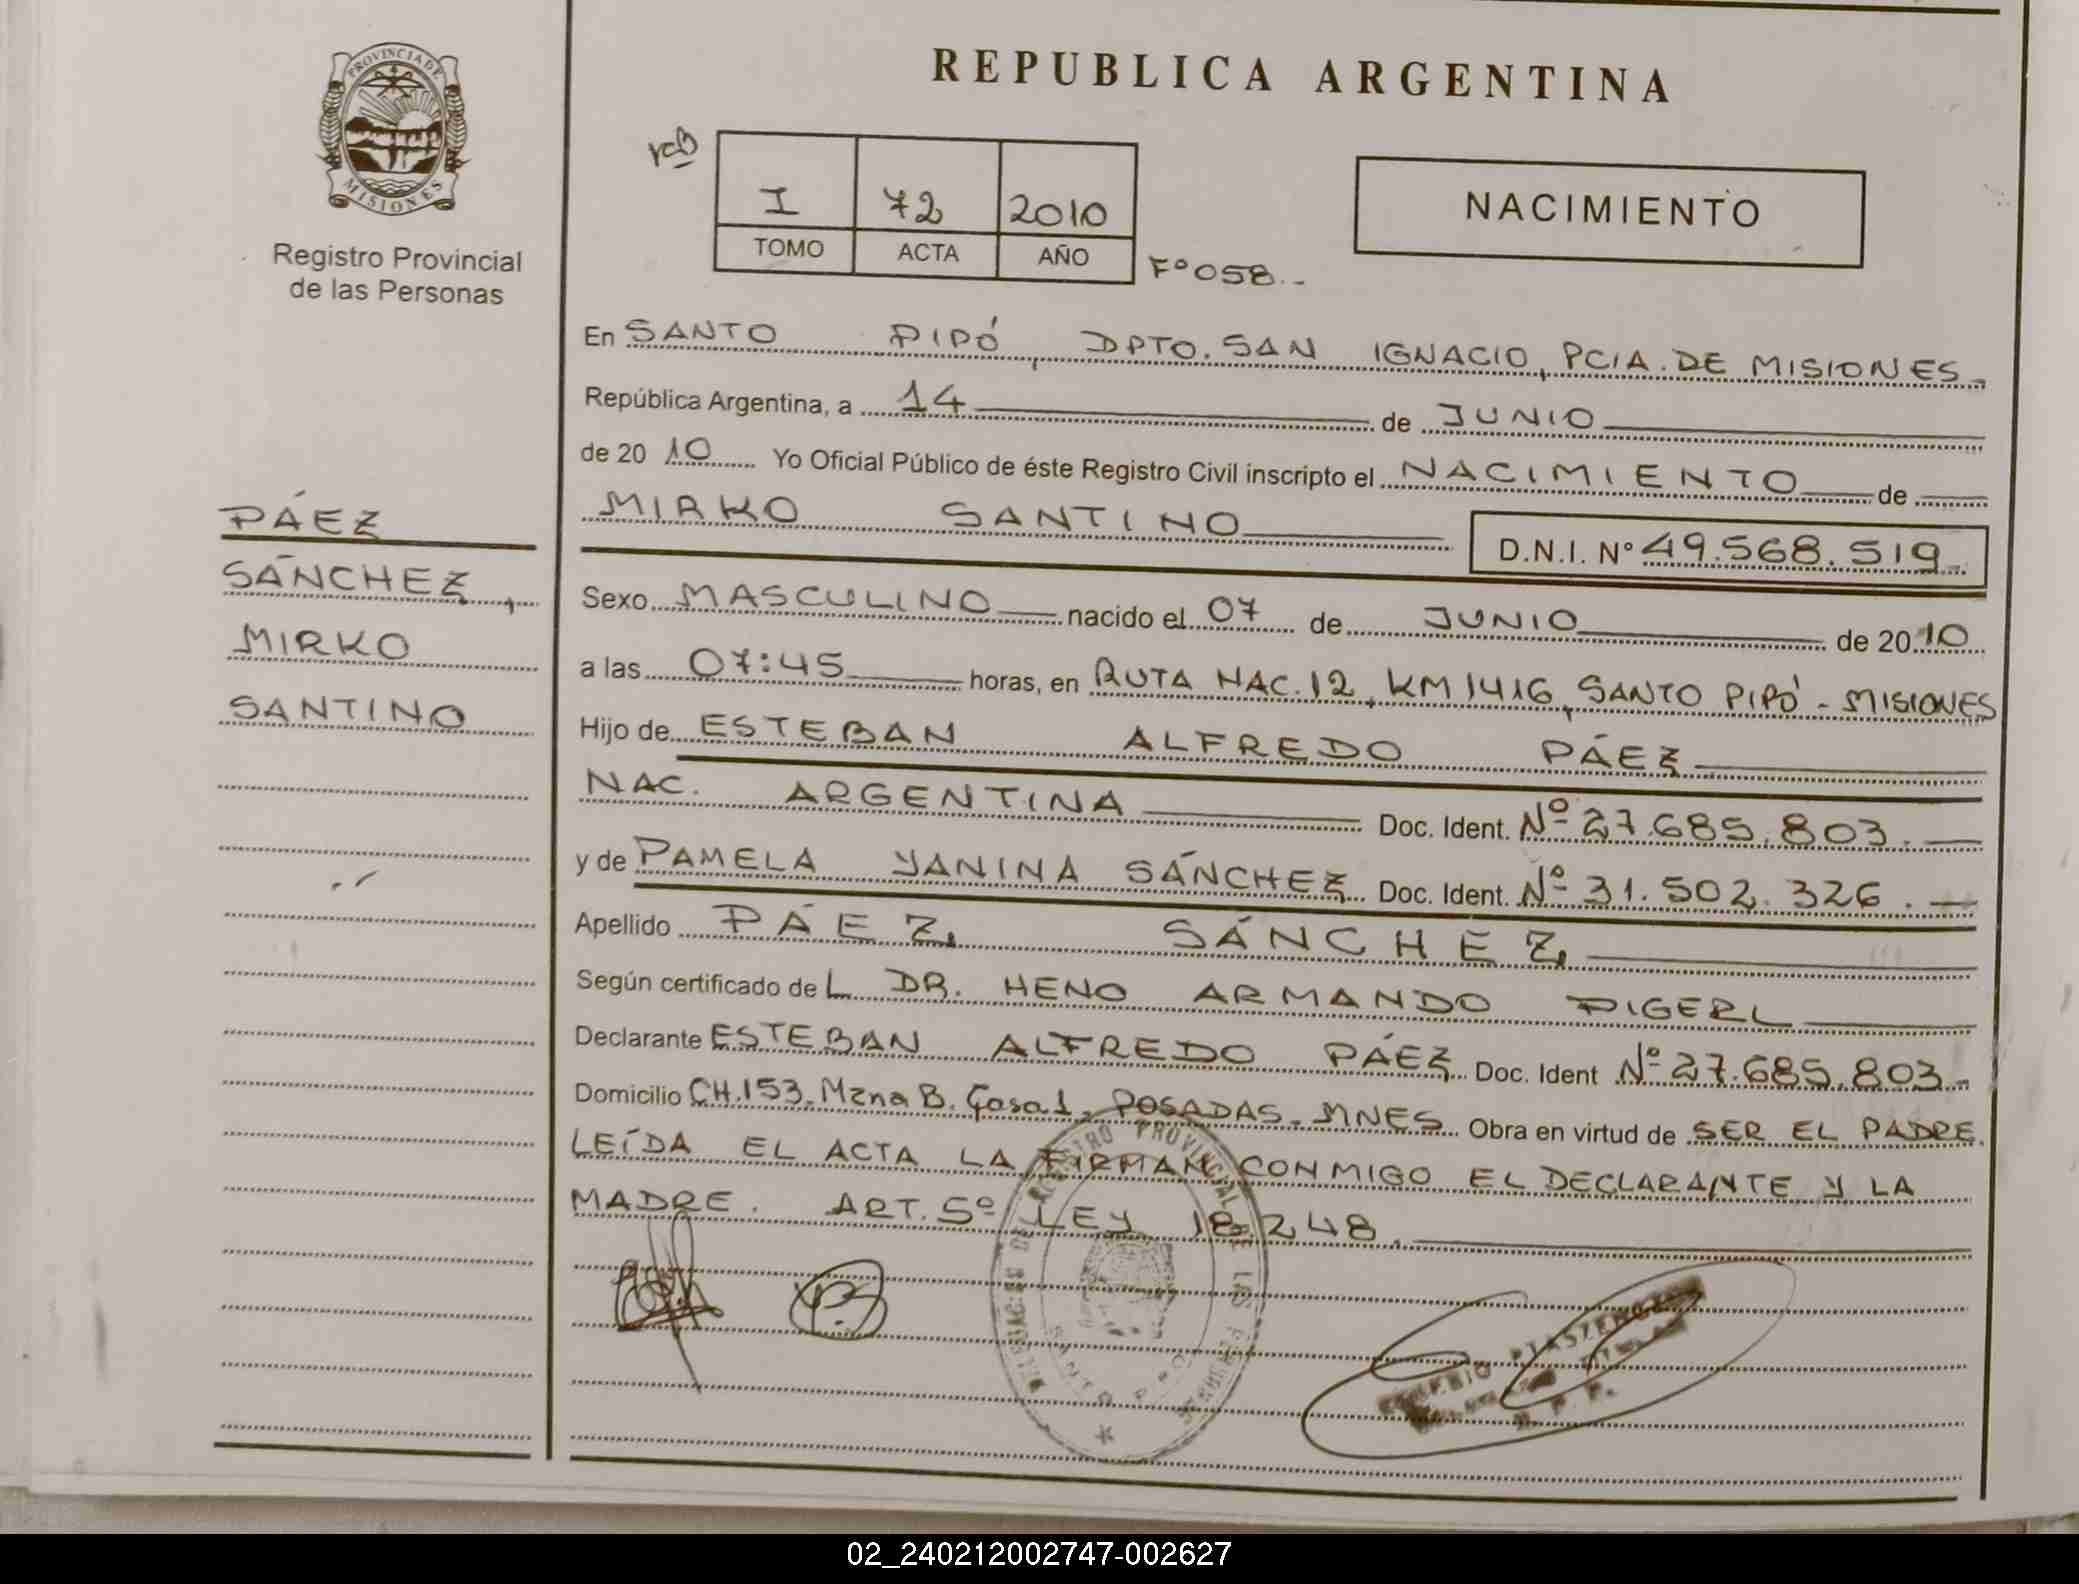 PROVINCIA DE
MISIONES
Registro Provincial
de las Personas
REPUBLICA ARGENTINA
I 72 2010
TOMO ACTA AÑO
Fº 058.-
NACIMIENTO
En SANTO PIPÓ, DPTO. SAN IGNACIO, PCIA. DE MISIONES.-
República Argentina, a 14 de JUNIO
de 20 10 Yo Oficial Público de éste Registro Civil inscripto el NACIMIENTO de
MIRKO SANTINO
D.N.I. Nº 49.568.519.-
PÁEZ
SÁNCHEZ,
MIRKO
SANTINO
Sexo MASCULINO nacido el 07 de JUNIO de 20 10
a las 07:45 horas, en RUTA NAC. 12, KM 1416, SANTO PIPÓ - MISIONES
Hijo de ESTEBAN ALFREDO PÁEZ
NAC. ARGENTINA Doc. Ident. Nº 27.685.803.-
y de PAMELA YANINA SÁNCHEZ Doc. Ident. Nº 31.502.326.-
Apellido PÁEZ SÁNCHEZ
Según certificado de L DR. HENO ARMANDO PIGERL
Declarante ESTEBAN ALFREDO PÁEZ Doc. Ident Nº 27.685.803.-
Domicilio CH.153. Mzna B. Casa 1. POSADAS. MNES Obra en virtud de SER EL PADRE.
LEÍDA EL ACTA LA FIRMAN CONMIGO EL DECLARANTE Y LA
MADRE. ART. 5º LEY 18.248.
REGISTRO PROVINCIAL DE LAS PERSONAS
SANTO PIPO
R. P. P.
02_240212002747-002627